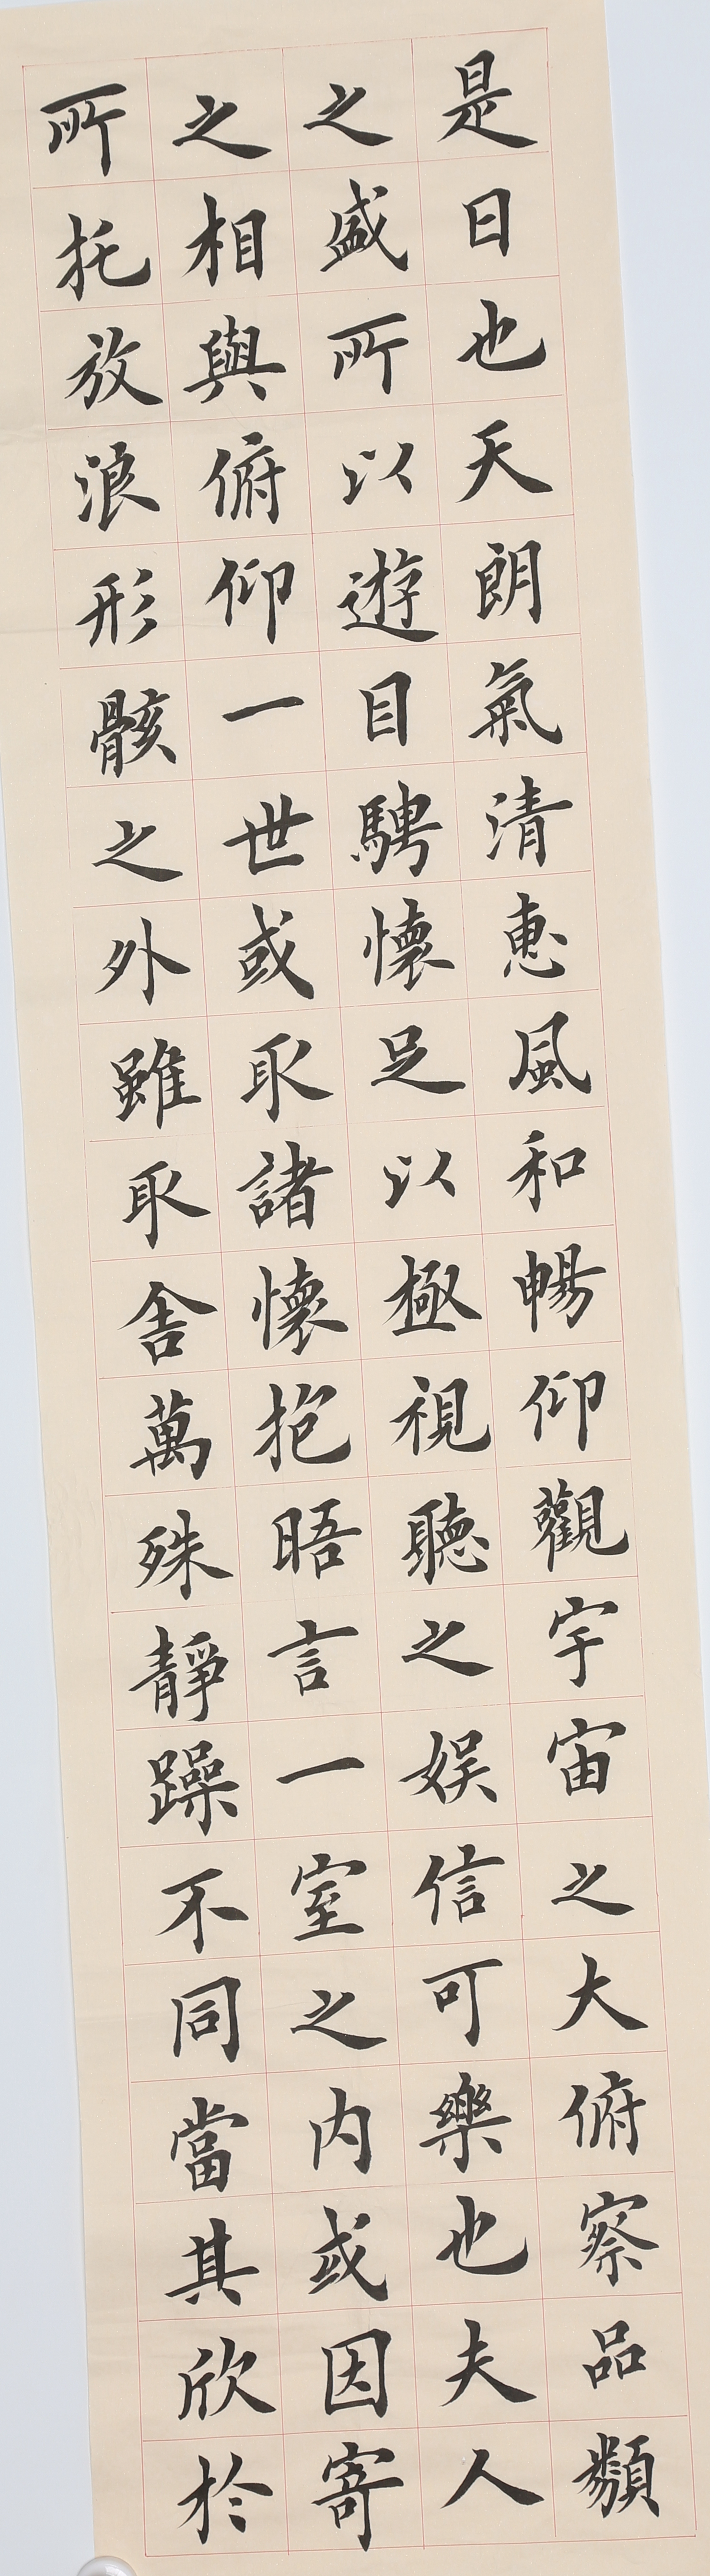 是日也天朗氣清惠風和暢仰觀宇宙之大俯察品類
之盛所以遊目騁懷足以極視聽之娛信可樂也夫人
之相與俯仰一世或取諸懷抱晤言一室之内或因寄
所托放浪形骸之外雖取舍萬殊靜躁不同當其欣於